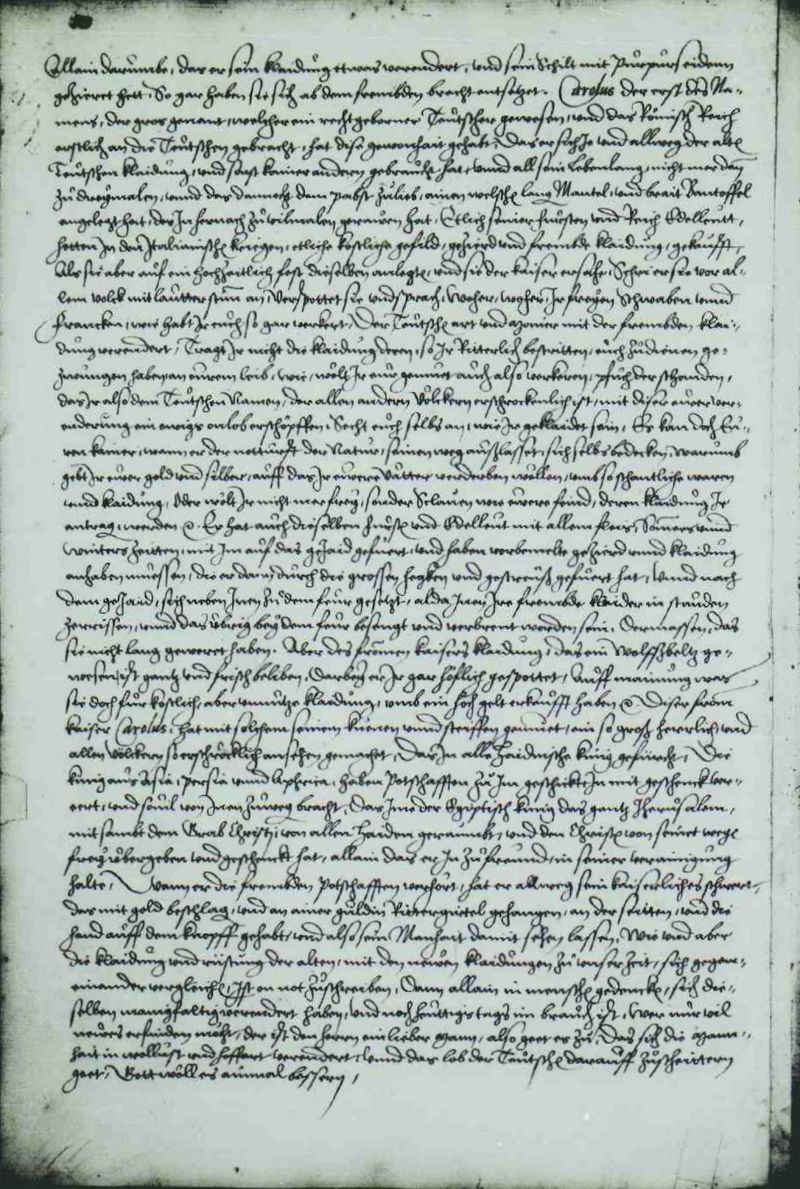 Allain darumbe, das er sein klaidung etwas verendert, und sein Schilt mit Purpurseidenn
geziert hett, So gar haben sie sich ab dem frembden bracht entsetzet. Carolus der erst des Na-
mens, der gros genant, welcher ein recht geborner Teutscher gewesen, und das Römisch Reich
erstlich an die Teutschen gebracht, hat dise gewonhait gehabt, Das er sich Je und allweg der altē
Teutschen klaidung, und sonst kainer andern gebraucht hat, unnd all sein Lebenlang, nicht mer dan
zu dreymalen, unnd das dannocht dem Pabst zu lieb, ainen welschē lang Mantel, und brait Pantoffel
angelegt hat, der In hernach zu vilmalen gerauen hat, Etlich seiner Fursten und Reich Edelleutt,
hetten In den Italianischē kriegen, etliche köstliche gefild, geziert und frembde klaidung, gekaufft,
Als sie aber auf ein hochzeitlich fest dieselben anlegtē, und sie der kaiser ersahe, Schrei er sie vor al-
lem volck mit lautter stim an, Verspottet sie und sprach, Woher, woher, Ir freyen Schwaben unnd
Francken, wie habt Ir euch so gar verkert, Der Teutschē art und manier mit der frembden klai-
dung verendert, Tragt Ir nicht die klaidung deren, so Ir Ritterlich bestritten, euch zu dienen ge-
zwungen haben, an eurem leib, wie, wolt Ir eur gemuet auch also verkeren, pfuch der schanden,
das Ir also dem Teutschen Namen, der allen andern Völckern erschrockenlich ist, mit diser eurer ver-
enderung ein ewigs onlob erschöpffen, Secht euch selbs an, wie Ir geklaidet seint, Er kan doch Eu-
rer kainer, wann er der notturfft der Natur, seinen weg auslasset, sich selbs bedecken, Warumb
gebt Ir euer gold und silber, auff das Ir euere Vätter verderben wöllen, umb so schantliche waren
unnd klaidung, Oder wölt Ir nicht mer frey, sonder Sclaven wie euere feind, deren klaidung Ir
antragt, werden ꝛc. Er hat auch dieselben Furstē und Edelleut mit allem fleis, Sumers unnd
winters zeitten, mit Im auf das gejaid gefuert, und haben vorbemelte geziert unnd klaidung
anhaben muessen, die er dann durch die grossen hecken und gestreuß gefuert hat, Unnd nach
dem gejaid, sich neben Inen zu dem feur gesetzt, alda Inen Ire frembde klaider in stauden
zerrissen, unnd das ubrig bey dem feur besengt und verbrent worden sein. Dermassen, das
sie nicht lang geweret haben. Aber des fromen kaisers klaidung, das ein Wolffsbeltz ge-
wesen, ist gantz und frisch beliben, Darbey er Ir gar höflich gespottet, Auff mainung was
sie doch fur köstlich, aber unnutze klaidung, umb ein hoch gelt erkaufft haben ꝛc. Diser from
kaiser Carolus, hat mit solchem seinem kuenen unnd steiffen gemuet, ein so groß herrlich, und
allen völckern so erschröcklich ansehen gemachet, Das In alle haidnische kunig geförcht, Die
kunig aus Asia, Persia unnd Aphrica, haben Potschafften zu Im geschickt, In mit geschenck ver-
eert, und sovil von Inen zuweg bracht, Das Ime der Egiptisch kunig das gantz Jherusalem,
mit sambt dem Grab Christi, von allen haiden geraumbt, und den Christē von seinet wegē
frey ubergeben und geschenckt hat, allain das er In zu freund, in seiner verainigung
halte, Wann er die frembden Potschafften verhört, hat er allweg sein kaiserliches schwert,
das mit gold beschlag, und an ainer guldin Rittergurtel gehangen, an der seitten, und die
hand auff dem knopff gehabt, und also sein Manhait damit sehen lassen, Wie und aber
die klaidung und rüstung der alten, mit den newen klaidungen zu unser zeit, sich gegen
einander verglichē, Ist on not zuschreiben, Dann allain in menschē gedenckē, sich die-
selben manigfaltig verendert haben, und noch heuttigs tags im brauch ist, Wer nur vil
neues erfinden möcht, der ist den herren ein lieber man, also geet es zu, Das sich die man-
hait in wollust und hoffart verendert, Unnd das lob der Teutschē darauff zuscheittern
geet, Gott wöll es ainmal bessern,